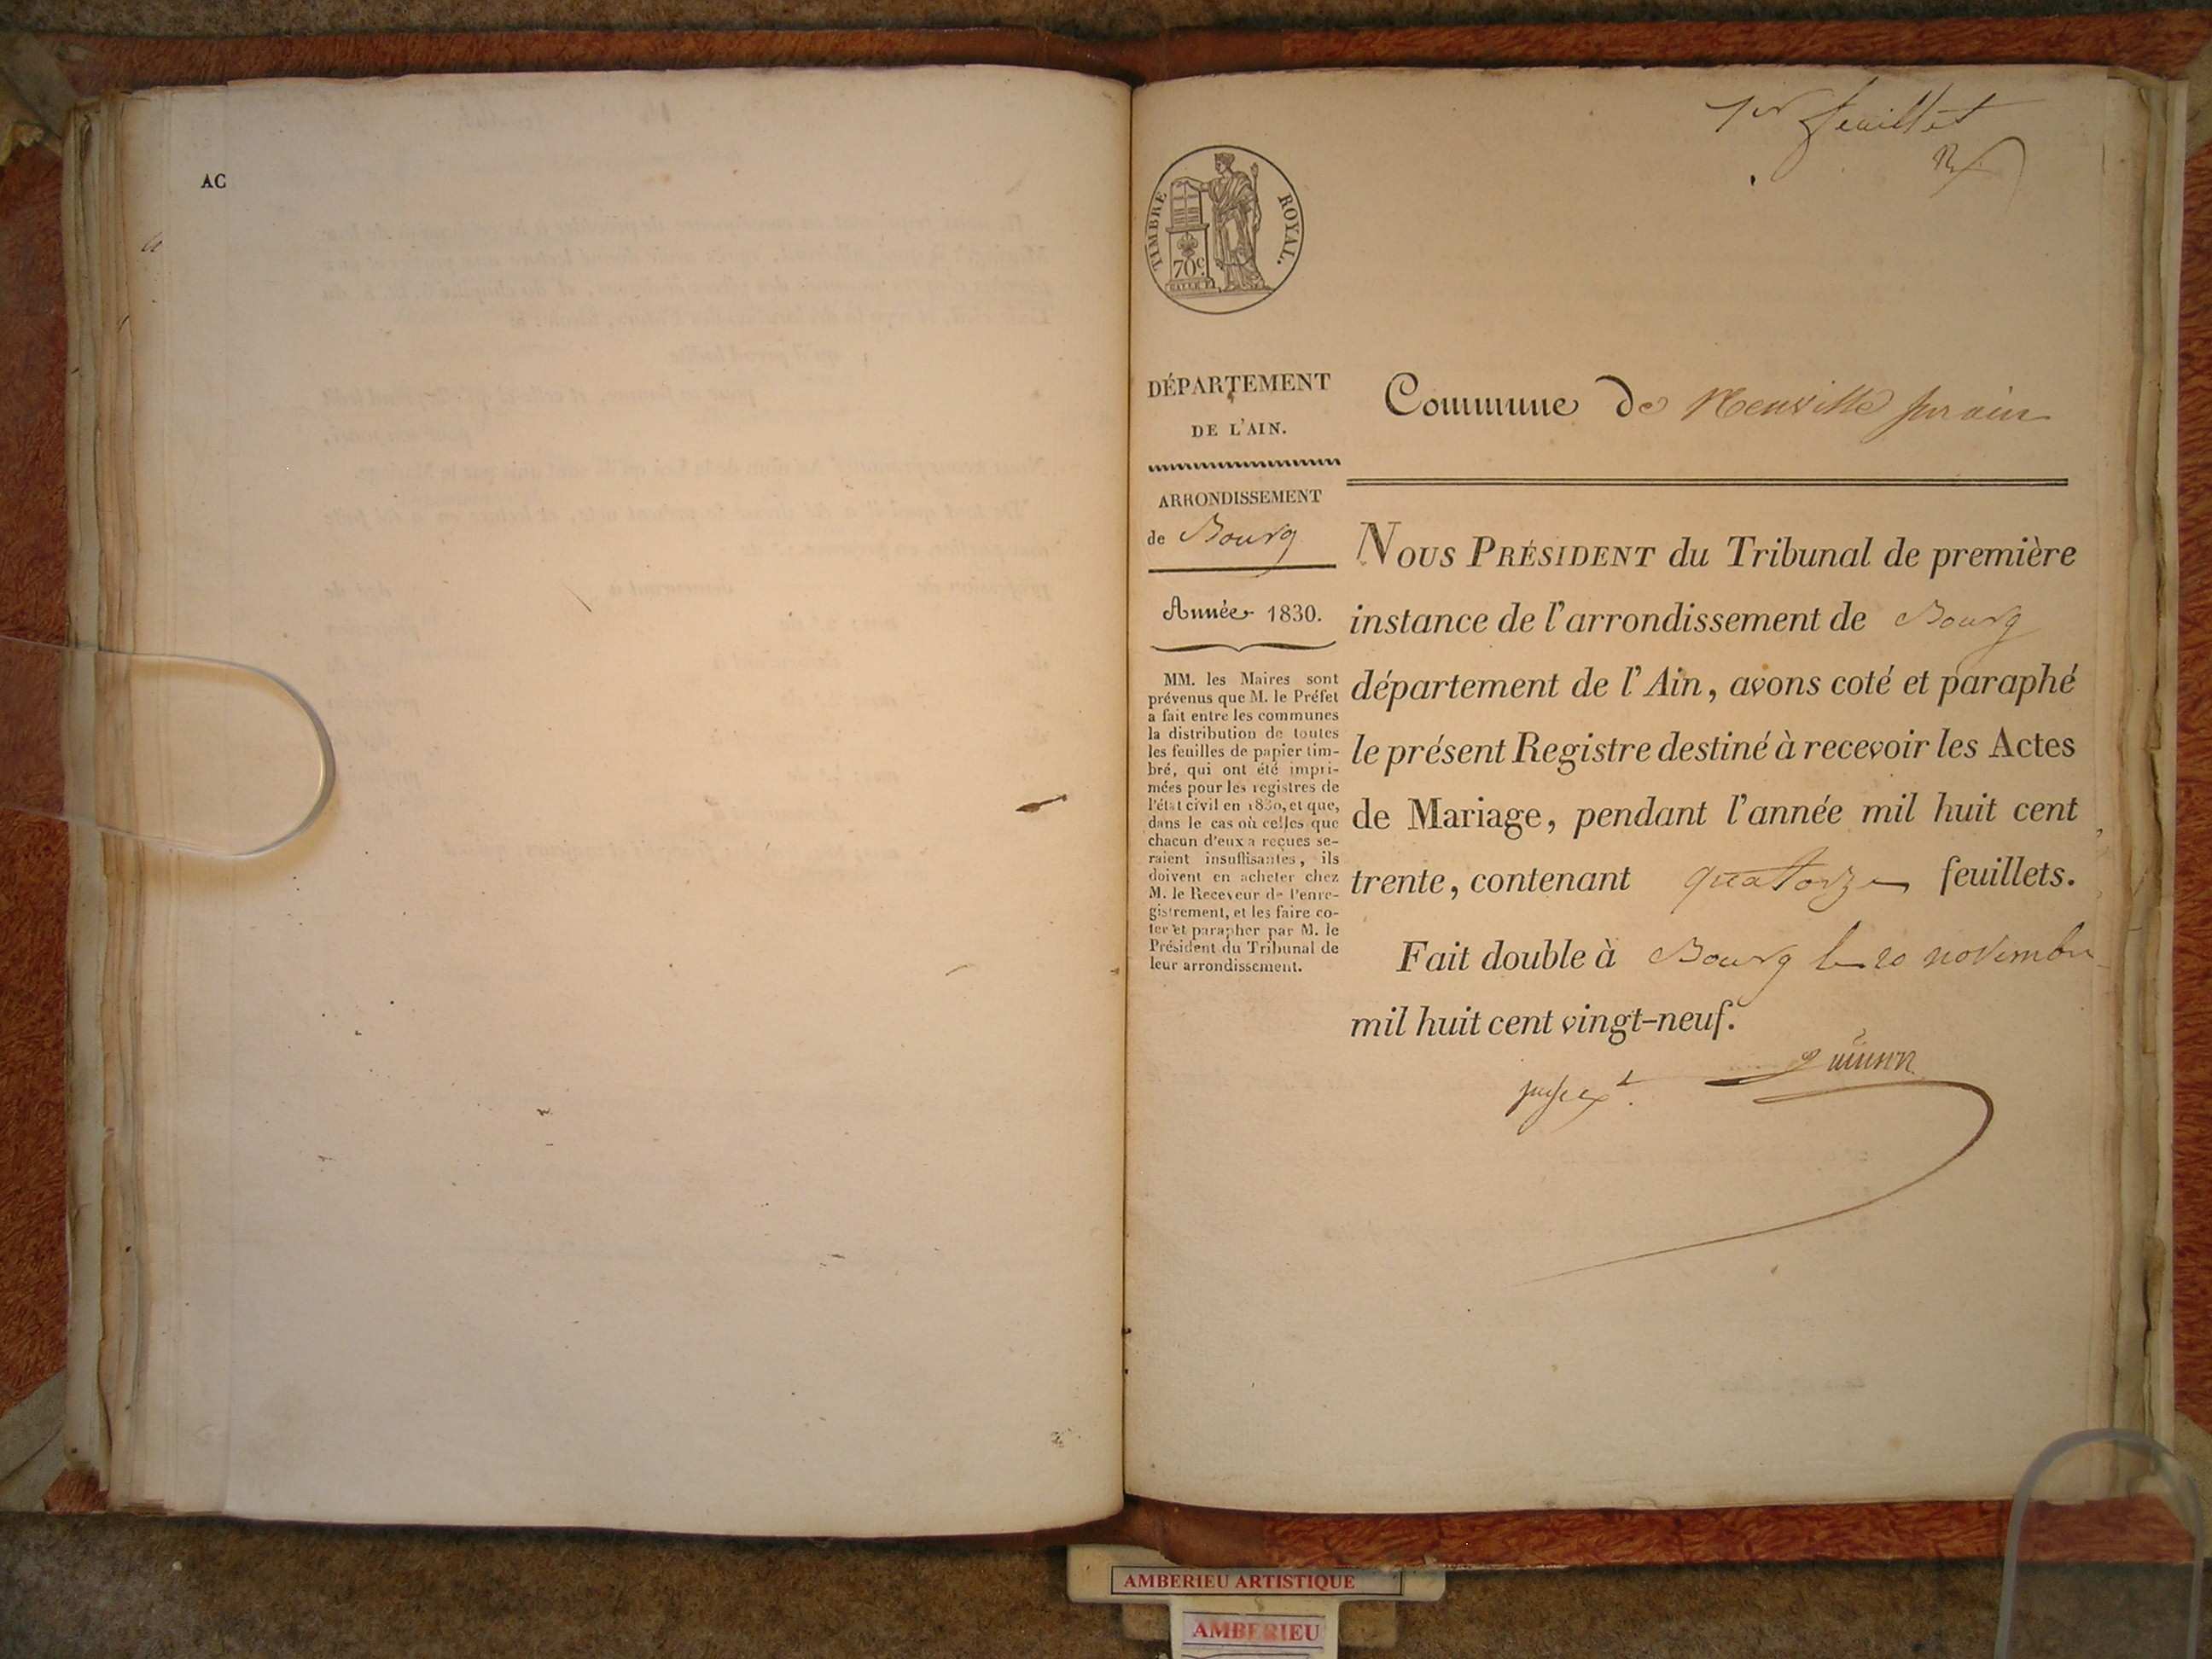 AC
1er feuillet
TIMBRE ROYAL.
70c
DÉPARTEMENT
DE L'AIN.
ARRONDISSEMENT
de Bourg
Année 1830.
MM. les Maires sont
prévenus que M. le Préfet
a fait entre les communes
la distribution de toutes
les feuilles de papier tim-
bré, qui ont été impri-
mées pour les registres de
l'état civil en 1830, et que,
dans le cas où celles que
chacun d'eux a reçues se-
raient insuffisantes, ils
doivent en acheter chez
M. le Receveur de l'enre-
gistrement, et les faire co-
ter et parapher par M. le
Président du Tribunal de
leur arrondissement.
Commune de Neuville sur ain
NOUS PRÉSIDENT du Tribunal de première
instance de l'arrondissement de Bourg
département de l'Ain, avons coté et paraphé
le présent Registre destiné à recevoir les Actes
de Mariage, pendant l'année mil huit cent
trente, contenant quatorze feuillets.
Fait double à Bourg le 20 novembre
mil huit cent vingt-neuf.
AMBERIEU ARTISTIQUE
AMBERIEU